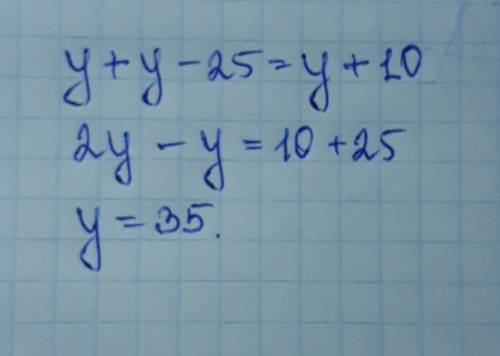 y + y - 25 = y + 10
2y - y = 10 + 25
y = 35.